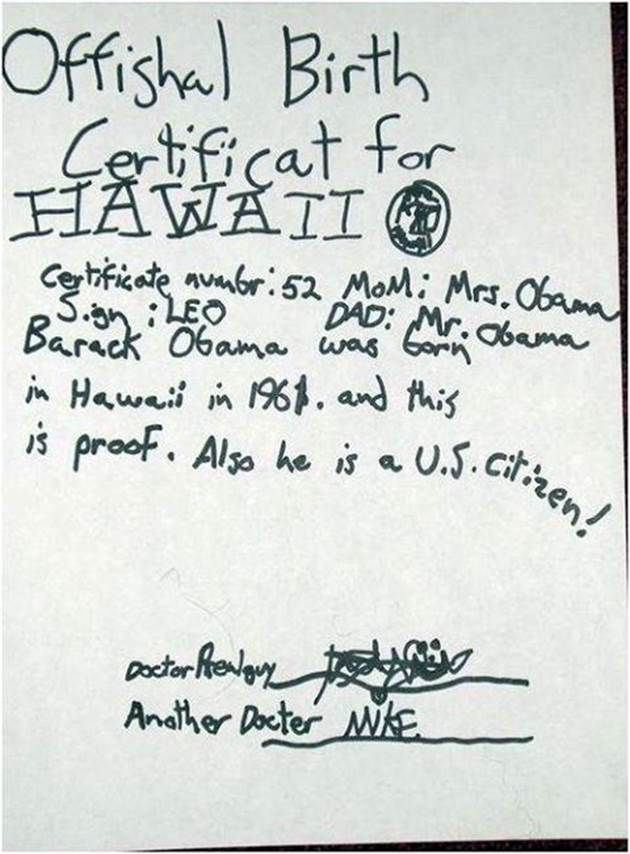 Offishal Birth
Certificat for
HAWAII
Certificate numbr: 52 MOM: Mrs. Obama
Sign: LEO DAD: Mr. Obama
Barack Obama was born
in Hawaii in 1961. and this
is proof. Also he is a U.S. citizen!
Doctor Realguy
Another Docter MIKE.